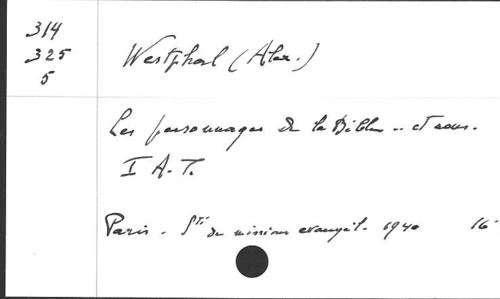 314
325
5
Westphal (Alex.)
Les personnages de la Bible .. et nous.
I A. T.
Paris - Sté des missions évangél. 1940 16°